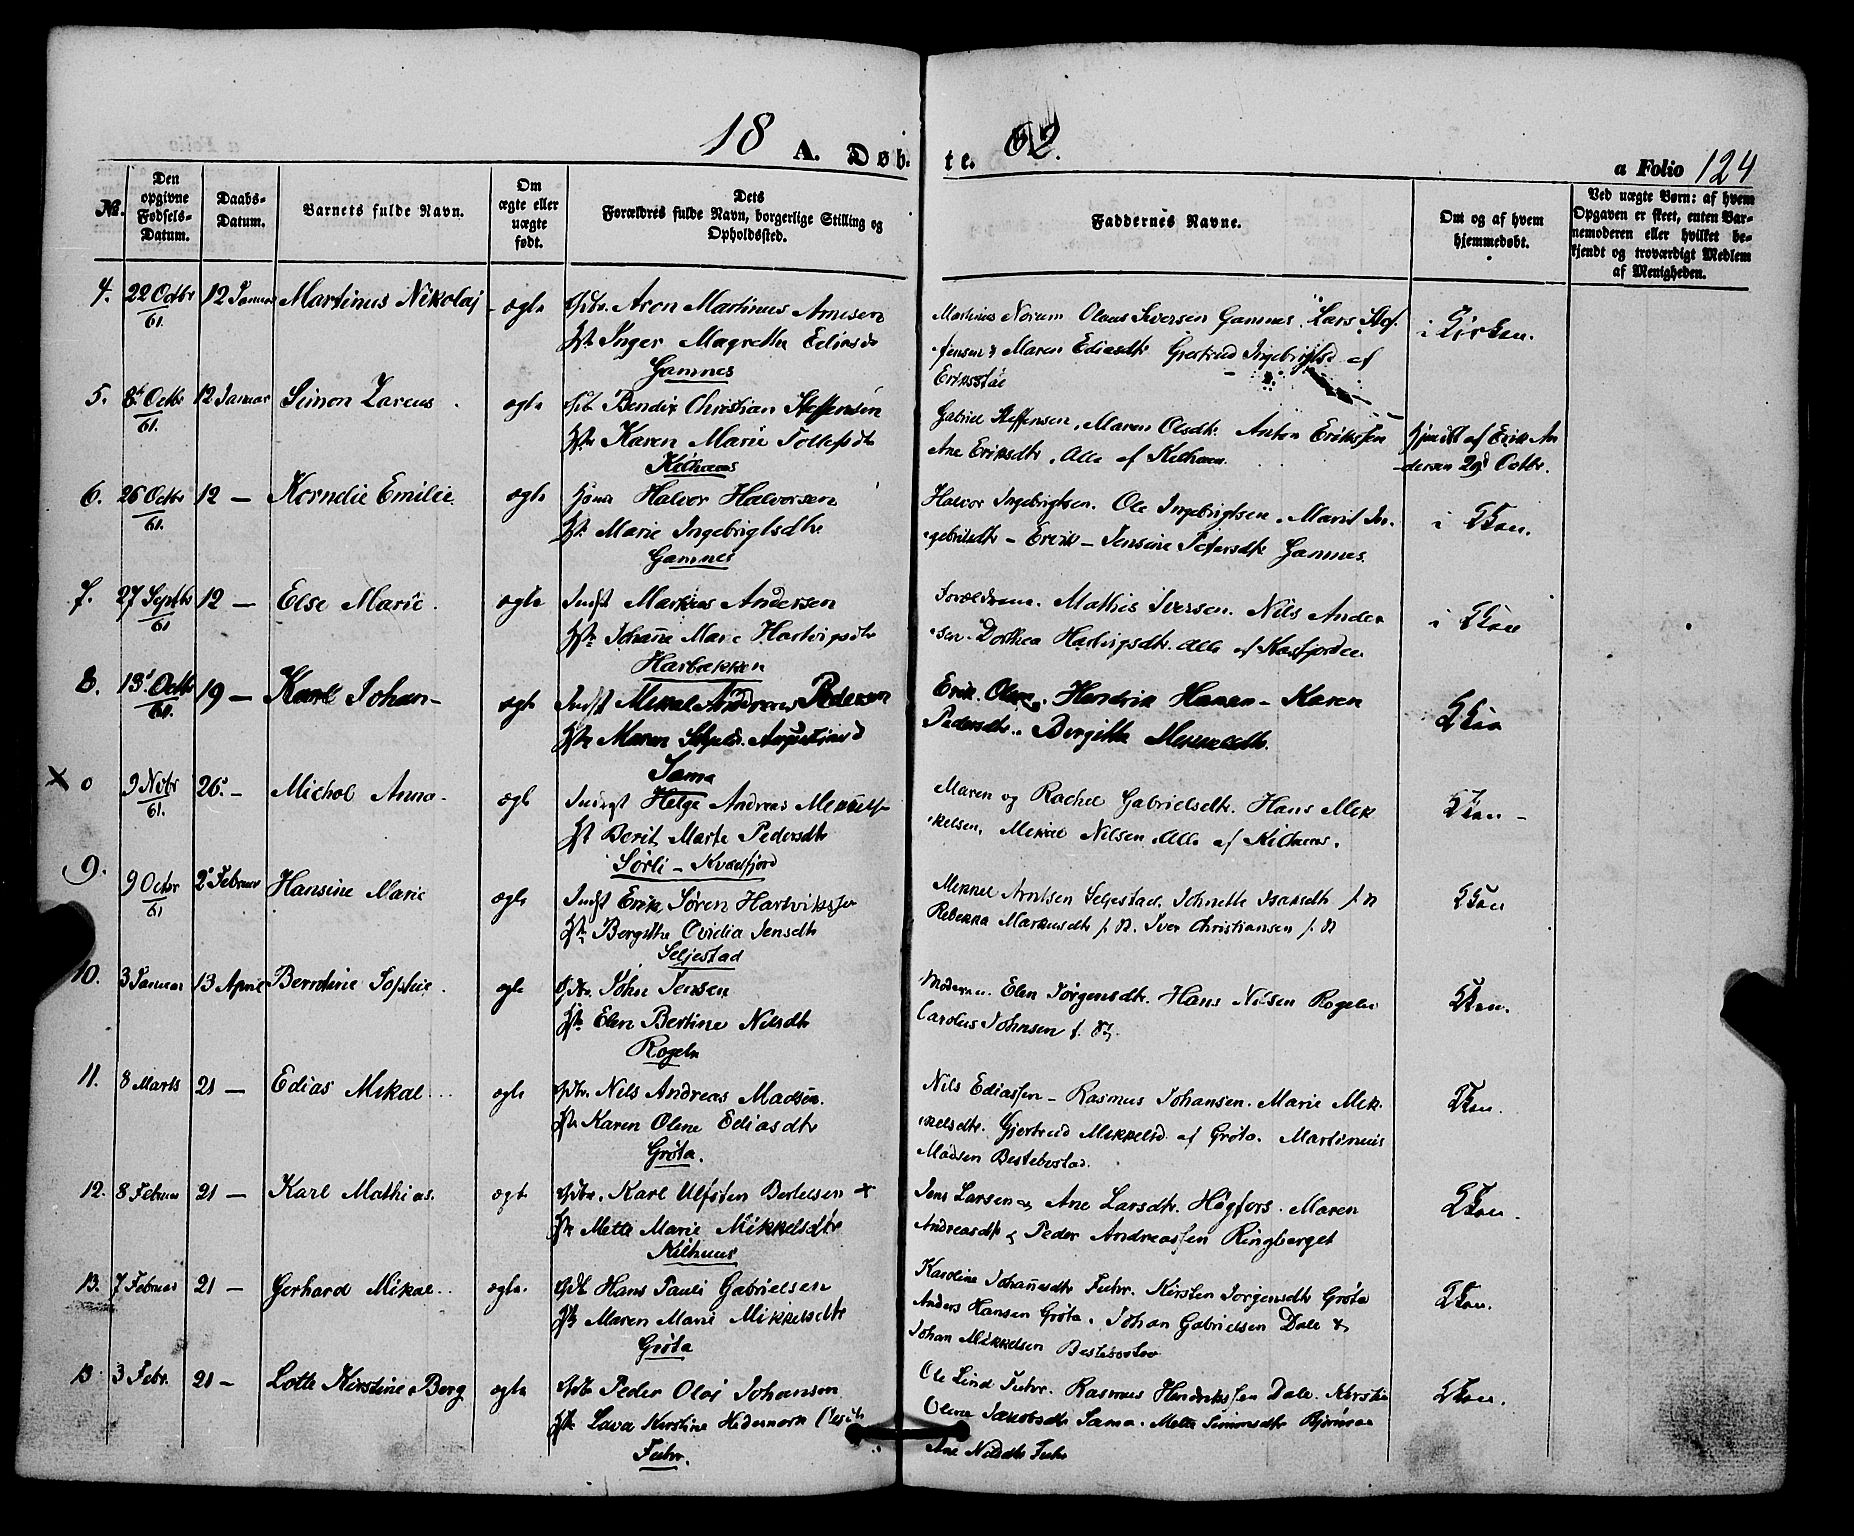 18 A. Døb.
te. 62.
a Folio 124
No.
Den opgivne Fødsels-Datum.
Daabs-Datum.
Barnets fulde Navn.
Om ægte eller uægte født.
Dets Forældres fulde Navn, borgerlige Stilling og Opholdssted.
Faddernes Navne.
Om og af hvem hjemmedøbt.
Ved uægte Børn: af hvem Opgaven er skeet, enten Barnemoderen eller hvilket bekjendt og troværdigt Medlem af Menigheden.
4. 22 Octbr 61. 12 Januar Martinus Nikolaj ægte
Aron Martinus Arntsen
Inger Magrethe Ediasd
Gamnes
Martinus Norum Olaus Iversen Gamnes. Lars Stef-
fensen & Maren Ediasdtr Gjertrud Ingebrigtsd af
i Kirken.
5. 8 Octbr 61. 12 Januar Simon Zareus ægte
Bendix Christian Steffensen
Karen Marie Tollefsdtr
Kilhuus
Gabriel Steffensen, Maren Olsdtr. Anton Erikssen
Ane Eriksdtr, Alle af Kilhuus.
af Erik An
dersen 29d Octbr.
6. 26 Octbr 61. 12 — Korndie Emilie ægte
Halvor Halvorsen
Marie Ingebrigtsdtr
Gamnes
Halvor Ingebrigtsen. Ole Ingebrigtsen. Marit In-
gebritsdtr – Erik – Jensine Petersdtr Gamnes.
i
7. 27 Septbr 61 12 — Else Marie. ægte
Indst Markus Andersen
Johanne Marie Hartvigsdtr
Harbakken
Forældrene. Mathis Iversen. Nils Ander
sen. Dorthea Hartvigsdtr. Alle af Kasfjorden
i
8. 13 Octbr 61. 19 — Karl Johan – ægte
Indst Mikal Andreas Pedersen
Maren
Sama
Erik Olsen, Hendrik Hansen – Karen
Pedersdtr. Bergitte Mikkelsdtr.
x 0 9 Novbr 61. 26. – Michol Anna – ægte
Helge Andreas
Berit Marte Pedersdtr
Sørli – Kvædfjord
Maren og Rachel Gabrielsdtr. Hans Mik
kelsen, Mikal Nilsen. Alle af Kilhuus.
9. 9 Octbr 61 2 Februar Hansine Marie ægte
Indst Erik Søren Hartvikssen
Bergithe Ovidia Jensdtr
Seljestad
Arntsen Seljestad. Johnette Isaksdtr
Rebekka Markusdtr Iver Christiansen
10. 3 Januar 13 April Berntine Sophie. ægte
John Jensen
Elen Bertine Nilsdtr
Rogeln
Moderen. Elen Jørgensdtr. Hans Nilsen Rogeln
Carolus Johnsen
11. 8 Marts 21 — Edias Mikal ægte
Nils Andreas Madsen.
Karen Oline Ediasdtr
Grøta.
Nils Ediassen – Rasmus Johansen. Marie Mik-
kelsdtr. Gjertrud Mikkelsd af Grøta. Martinus
Madsen Bestebostad.
12. 8 Februar 21 — Karl Mathias. ægte
Karl Ulfsten Bertelsen x
Mette Marie Mikkelsdtr
Kilhuus
Jens Larsen & Ane Larsdtr. Høgfors. Maren
Andreasdtr & Peder Andreassen Ringberget
13. 7 Februar 21 — Gerhard Mikal ægte.
Hans Pauli Gabrielsen
Maren Marie Mikkelsdtr
Grøta
Karoline Johannesdtr Fuhr. Kirsten Jørgensdtr Grøta
Anders Hansen Grøta. Johan Gabrielsen Dale &
Johan Mikkelsen Bestebostad
13 3 Febr. 21 — Lotte Kirstine Berg ægte
Peder Olai Johansen
Lava Kirstine
Fuhr.
Ole Lind Fuhr. Rasmus Hendrikssen Dale. Kirstin
Oline Jakobsdtr Sama. Mette Simonsdtr
Ane Nilsdtr Fuhr